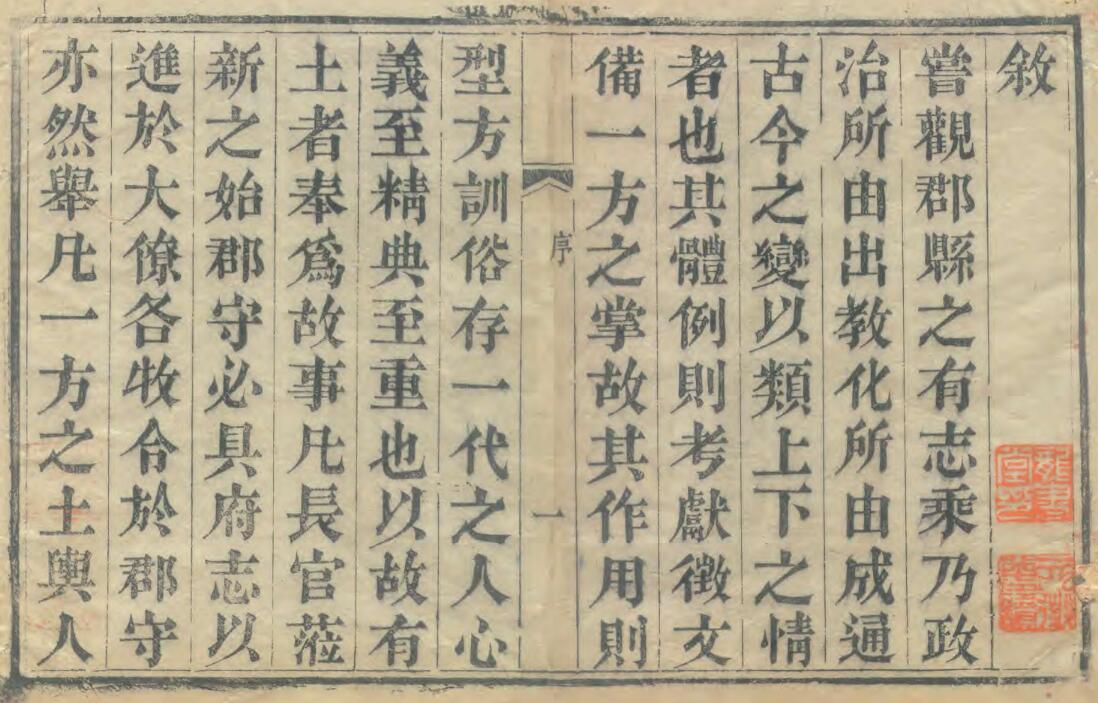 敘
嘗觀郡縣之有志乘乃政
治所由出教化所由成通
古今之變以類上下之情
者也其體例則考獻徵文
備一方之掌故其作用則
序
一
型方訓俗存一代之人心
義至精典至重也以故有
土者奉爲故事凡長官蒞
新之始郡守必具府志以
進於大僚各牧合於郡守
亦然舉凡一方之土輿人